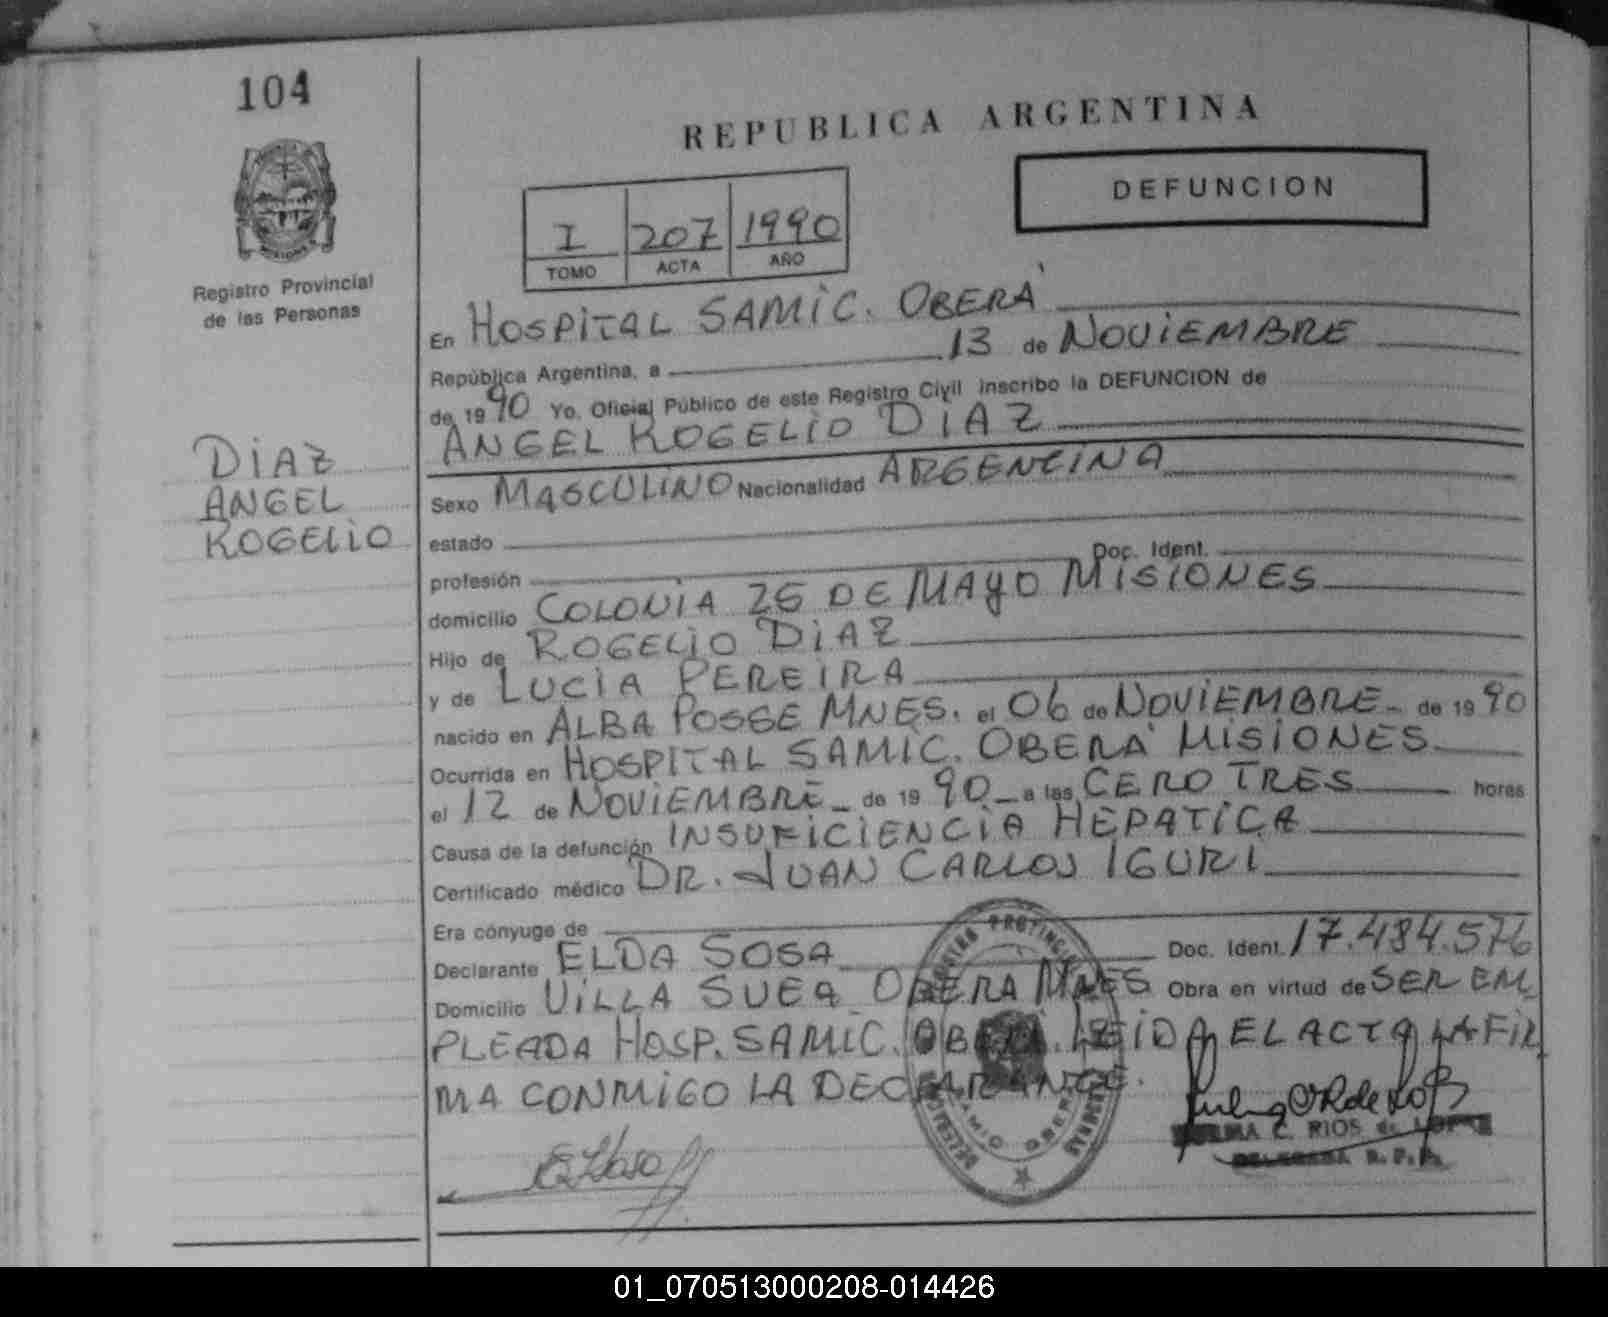 104
REPUBLICA ARGENTINA
DEFUNCION
I 207 1990
TOMO ACTA AÑO
Registro Provincial
de las Personas
En HOSPITAL SAMIC. OBERA'
República Argentina, a 13 de NOVIEMBRE
de 1990 Yo, Oficial Público de este Registro Civil inscribo la DEFUNCION de
ANGEL ROGELIO DIAZ
DIAZ
ANGEL
ROGELIO
Sexo MASCULINO Nacionalidad ARGENTINA
estado
profesión Doc. Ident.
domicilio COLONIA 25 DE MAYO MISIONES
Hijo de ROGELIO DIAZ
y de LUCIA PEREIRA
nacido en ALBA POSSE MNES. el 06 de NOVIEMBRE de 1990
Ocurrida en HOSPITAL SAMIC. OBERA' MISIONES
el 12 de NOVIEMBRE de 1990 a las CERO TRES horas
Causa de la defunción INSUFICIENCIA HEPATICA
Certificado médico DR. JUAN CARLOS IGURI
Era cónyuge de
Declarante ELDA SOSA Doc. Ident. 17.484.576
Domicilio VILLA SUEA OBERA MNES Obra en virtud de SER EM
PLEADA HOSP. SAMIC. OBERA. LEIDA EL ACTA LA FIR
MA CONMIGO LA DECLARANTE.
C. RIOS de
R. P.
SAMIC OBERA
01_070513000208-014426